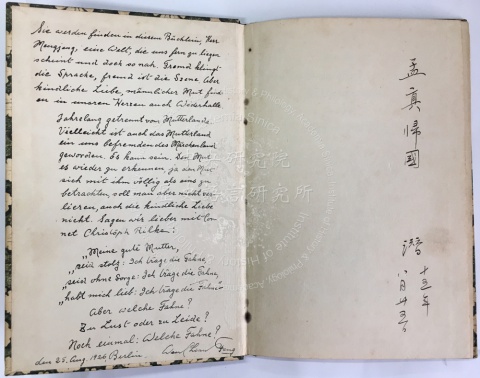 Sie werden finden in diesem Büchlein, Herr
Menggang, eine Welt, die uns fern zu liegen
scheint und doch so nah. Fremd klingt
die Sprache, fremd ist die Szene. Aber
kindliche Liebe, männlicher Mut find
en in unseren Herzen auch Widerhalle.
Jahrelang getrennt vom Mutterlande.
Vielleicht ist auch das Mutterland
ein uns befremdendes Märchenland
geworden. Es kann sein. Den Mut
es wieder zu erkennen, ja den Mut
sich mit ihm völlig als eins zu
betrachten, soll man aber nicht ver-
lieren, auch die kindliche Liebe
nicht. Sagen wir lieber mit Cor
net Christoph Rilken:
„Meine gute Mutter,
„seid stolz: Ich trage die Fahne,
„seid ohne Sorge: Ich trage die Fahne,
„habt mich lieb: Ich trage die Fahne"
Aber welche Fahne?
Zu Lust oder zu Leide?
Noch einmal: Welche Fahne?
den 25. Aug. 1924 Berlin.
孟真歸國
濳 十三年
八月廿五日